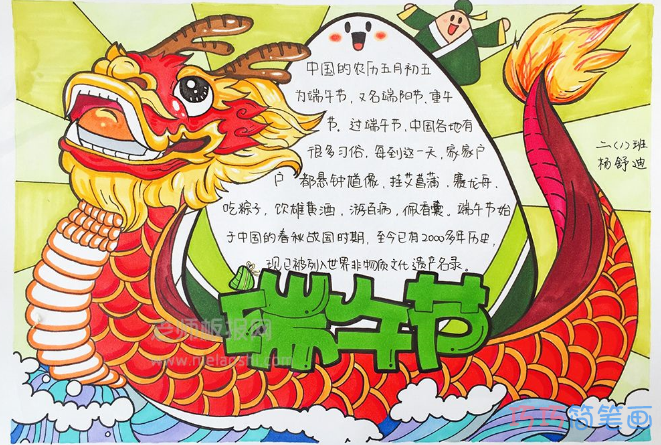 中国的农历五月初五
为端午节，又名端阳节、重午
节。过端午节，中国各地有
很多习俗，每到这一天，家家户
户都悬钟馗像，挂艾菖蒲，赛龙舟，
吃粽子，饮雄黄酒，游百病，佩香囊。端午节始
于中国的春秋战国时期，至今已有2000多年历史，
现已被列入世界非物质文化遗产名录。
二(1)班
杨舒迪
端午节
老师板报网
www.rielaoshi.com
巧巧简笔画